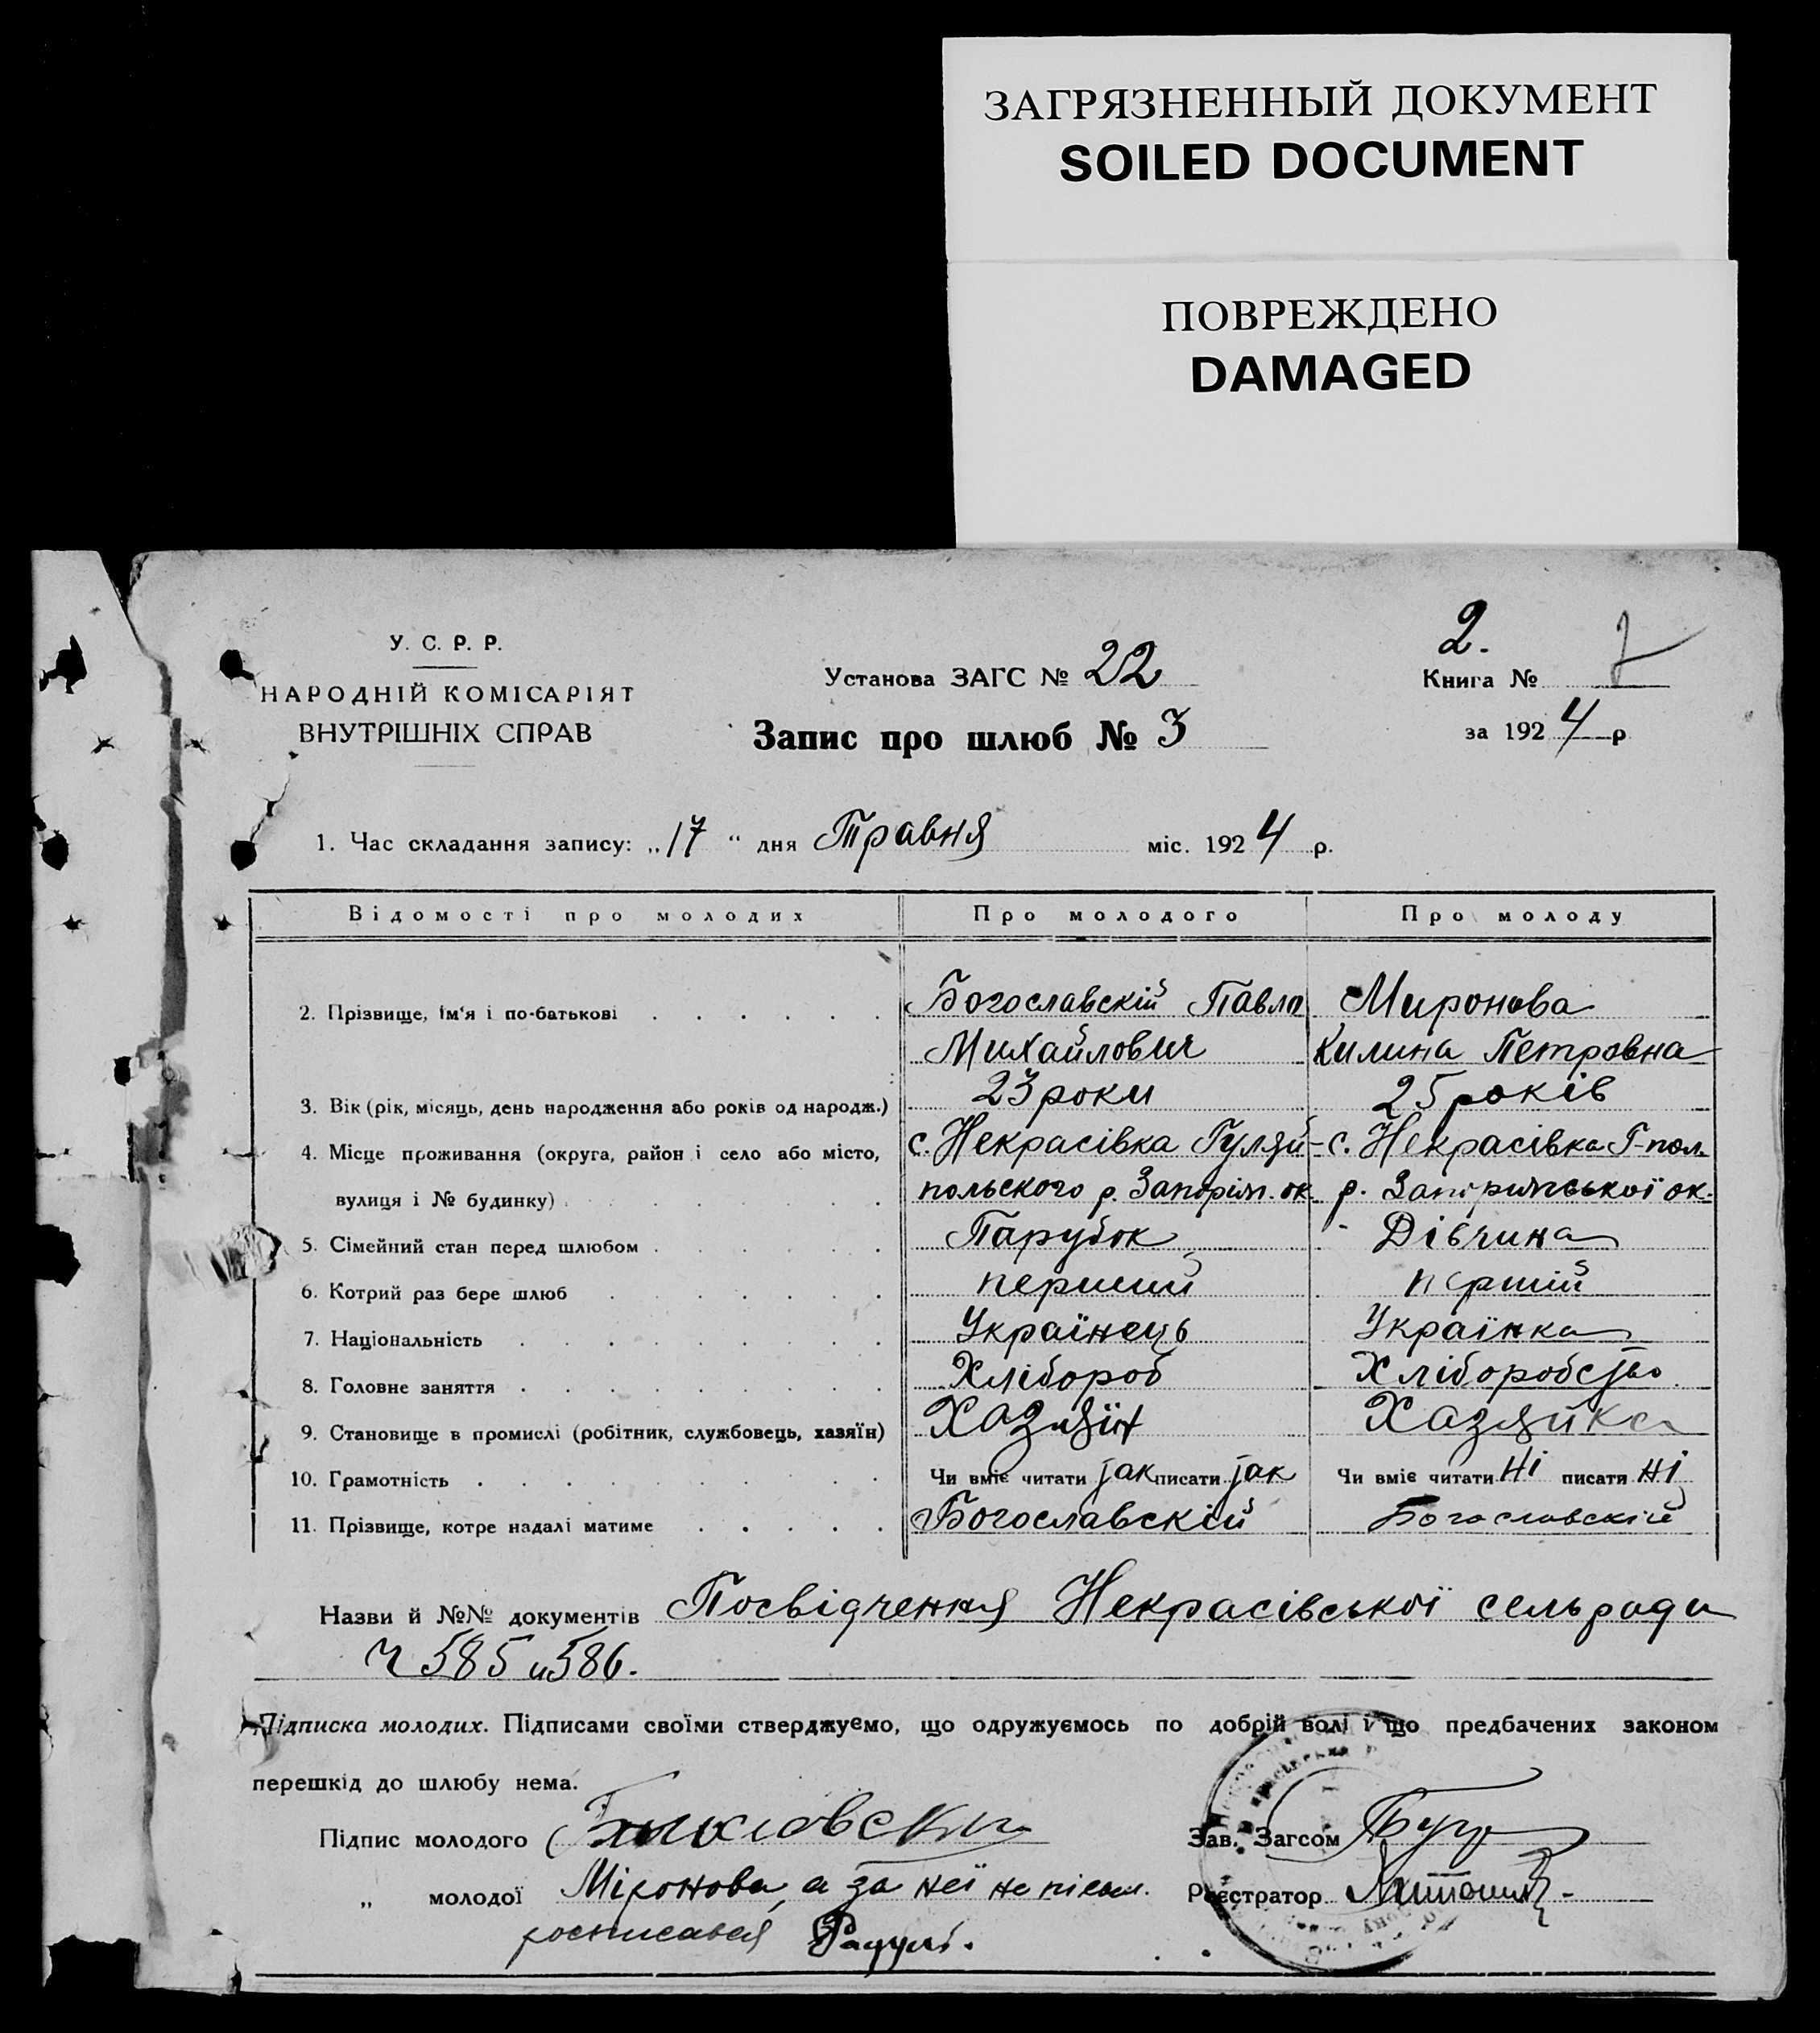 ЗАГРЯЗНЕННЫЙ ДОКУМЕНТ
SOILED DOCUMENT
ПОВРЕЖДЕНО
DAMAGED
У. С. Р. Р.
НАРОДНІЙ КОМІСАРІЯТ
ВНУТРІШНІХ СПРАВ
Установа ЗАГС № 22
Запис про шлюб № 3
2.
Книга № 2
за 1924 р
1. Час складання запису: „17 “ дня Травня міс. 1924 р.
Відомості про молодих Про молодого Про молоду
2. Прізвище, ім'я і по-батькові Богославскій Павло Миронова
Михайлович Килина Петровна
3. Вік (рік, місяць, день народження або років од народж.) 23 роки 25 років
4. Місце проживання (округа, район і село або місто, с. Некрасівка Гуляй- с. Некрасівка Г-пол.
вулиця і № будинку) польского р. Запоріж. ок. р. Запоріжської ок.
5. Сімейний стан перед шлюбом Парубок Дівчина
6. Котрий раз бере шлюб перший першій
7. Національність Українець Українка
8. Головне заняття Хлібороб Хліборобство
9. Становище в промислі (робітник, службовець, хазяїн) Хазяїн Хазяйка
10. Грамотність Чи вміє читати так писати так Чи вміє читати Ні писати Ні
11. Прізвище, котре надалі матиме Богославскій Богославскій
Назви й №№ документів Посвідчення Некрасівської сельради
Ч 585 и 586.
Підписка молодих. Підписами своїми стверджуємо, що одружуємось по добрій волі і що предбачених законом
перешкід до шлюбу нема.
Підпис молодого Зав. Загсом
„ молодої Міронова, а за неї не письм. Реєстратор
росписався